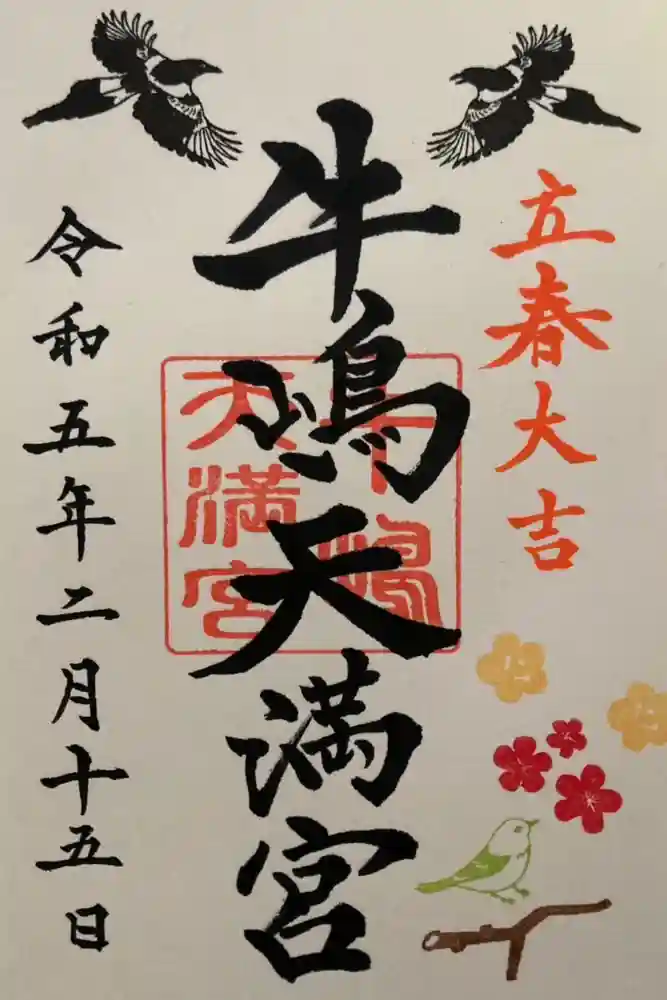 立春大吉
牛嶋天満宮
牛嶋
天満宮
令和五年二月十五日